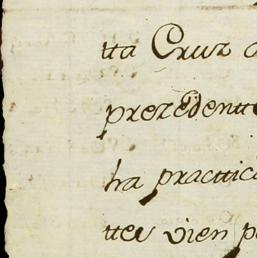 tta Cruz
prezedentte
ha practtic
ttes vien p